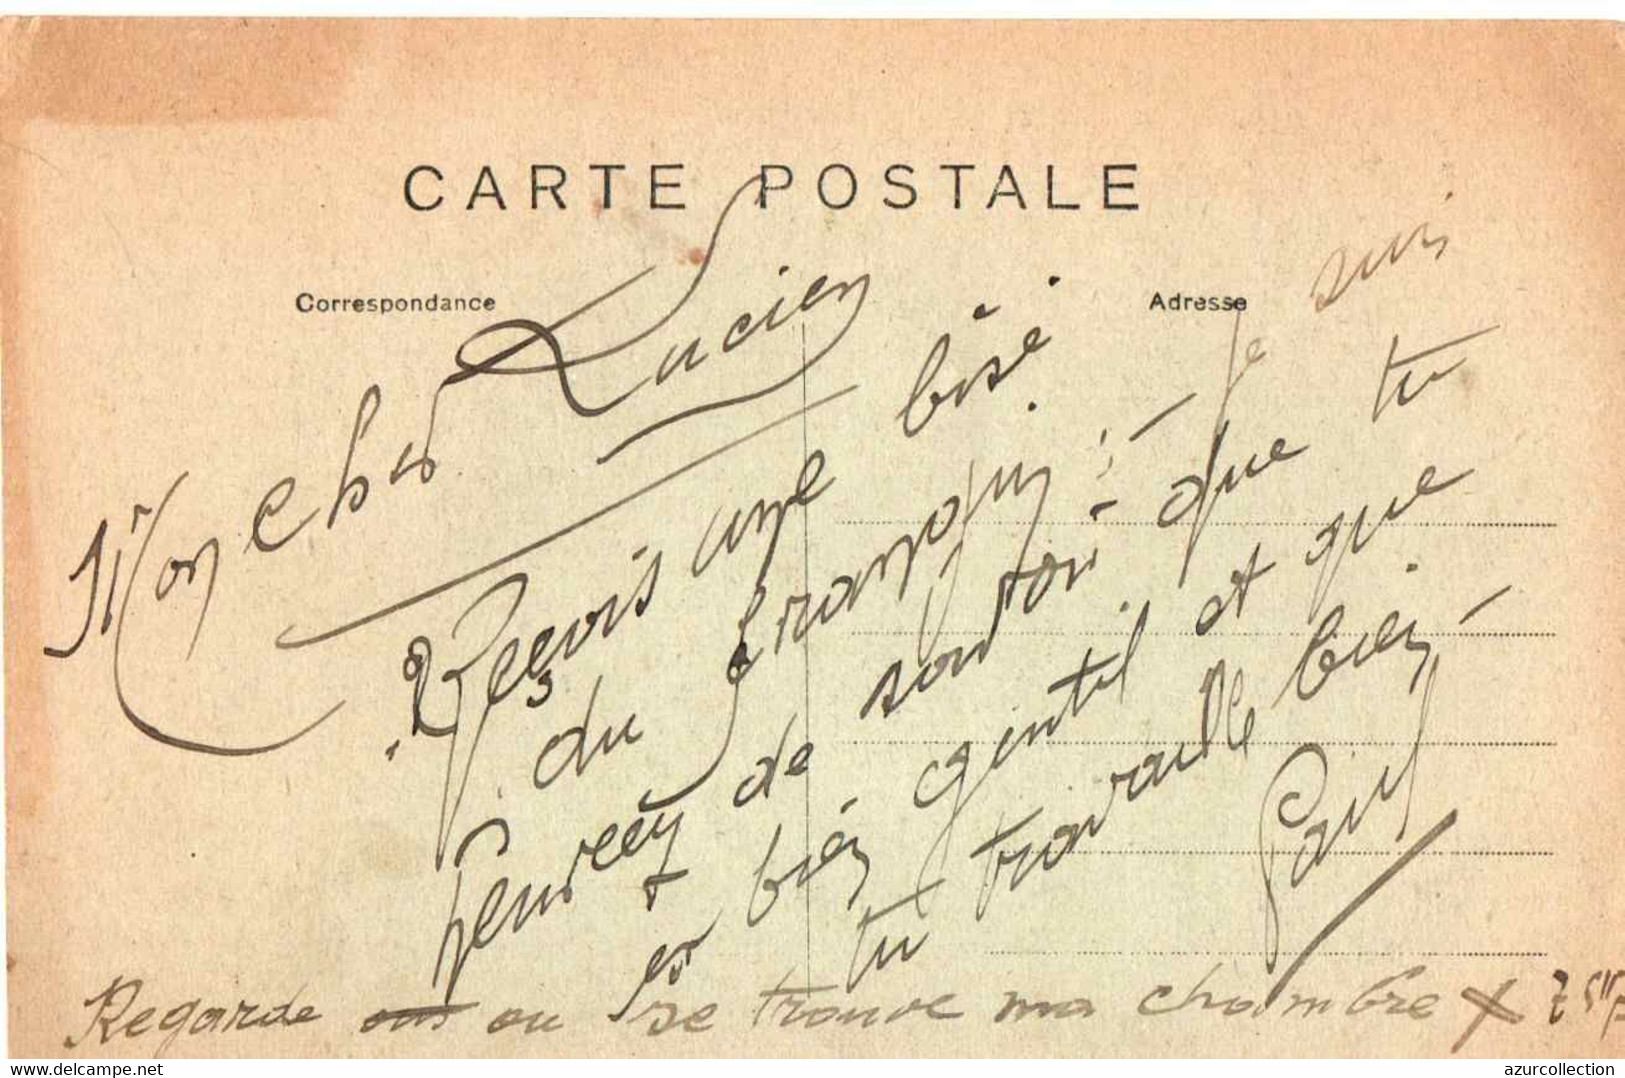 CARTE POSTALE
Correspondance
Adresse
Mon cher Lucien
Reçois une bisé
du frangin – je suis
heureux de savoir que tu
es bien gentil et que
tu travaille bien –
Paul
Regarde ou se trouve ma chambre X
delcampe.net
azurcollection